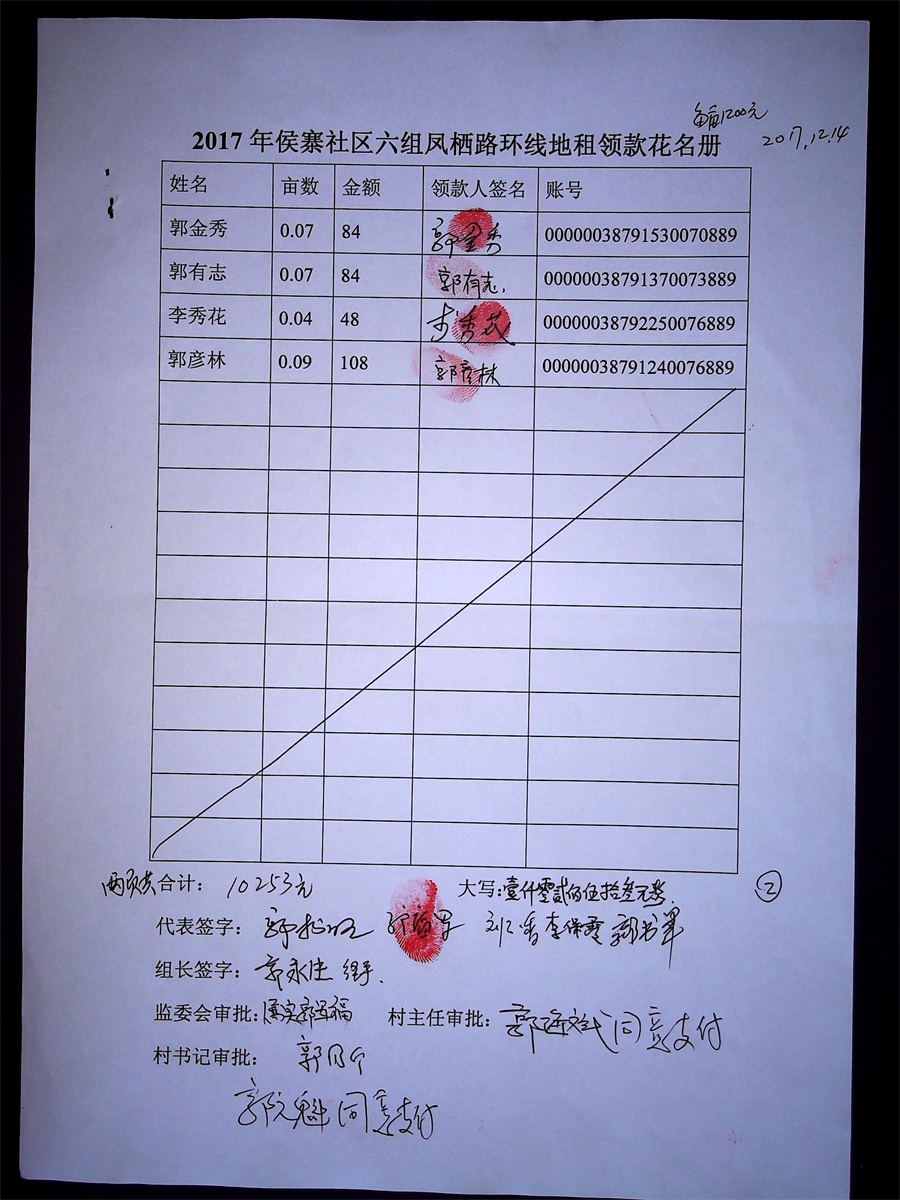 每亩1200元
2017.12.14
2017 年侯寨社区六组凤栖路环线地租领款花名册
姓名 亩数 金额 领款人签名 账号
郭金秀 0.07 84 郭金秀 00000038791530070889
郭有志 0.07 84 郭有志 00000038791370073889
李秀花 0.04 48 李秀花 00000038792250076889
郭彦林 0.09 108 郭彦林 00000038791240076889
两页共合计: 10253元 大写:壹仟零贰佰伍拾叁元整 ②
代表签字: 李保霞 郭书军
组长签字: 郭永生 经手.
监委会审批: 属实 郭军福 村主任审批: 同意支付
村书记审批:
同意支付